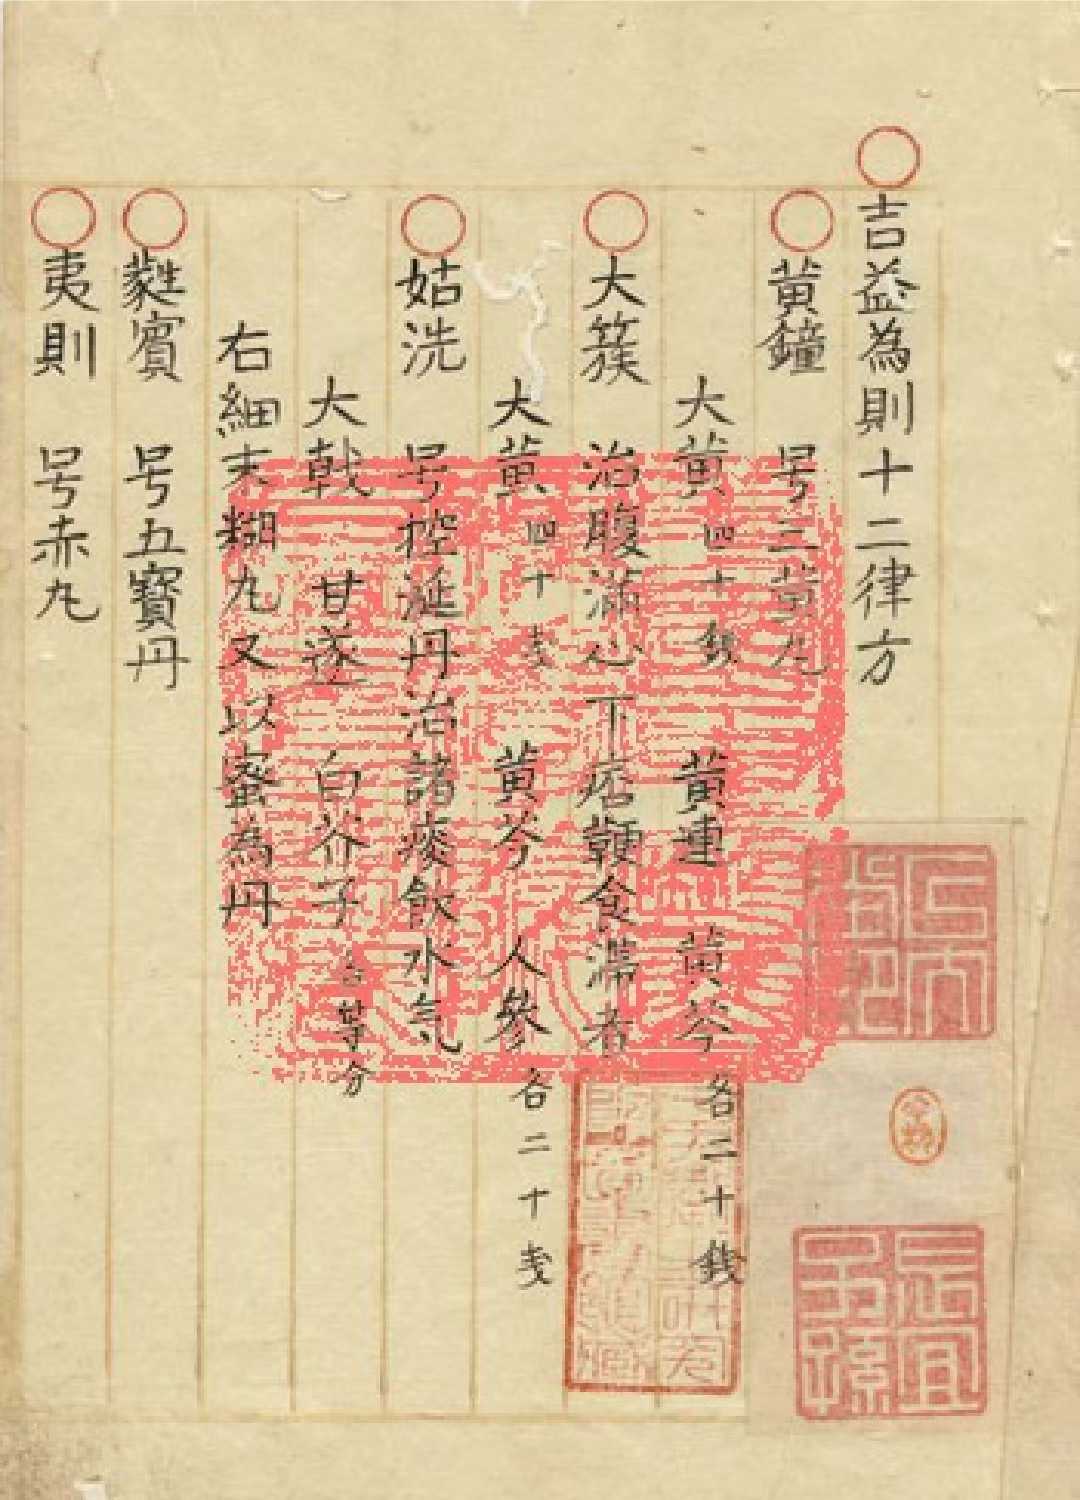 ○吉益為則十二律方
○黄鐘 号三黄丸
大黄四十錢 黄連 黄芩各二十錢
○大簇 治腹満心下痞鞕食滞者
大黄四十戔 黄芩 人參各二十戔
○姑洗 号控涎丹治諸痰飲水気
大戟 甘遂 白芥子各等分
右細末糊丸又以蜜為丹
○蕤賓 号五寳丹
○夷則 号赤丸